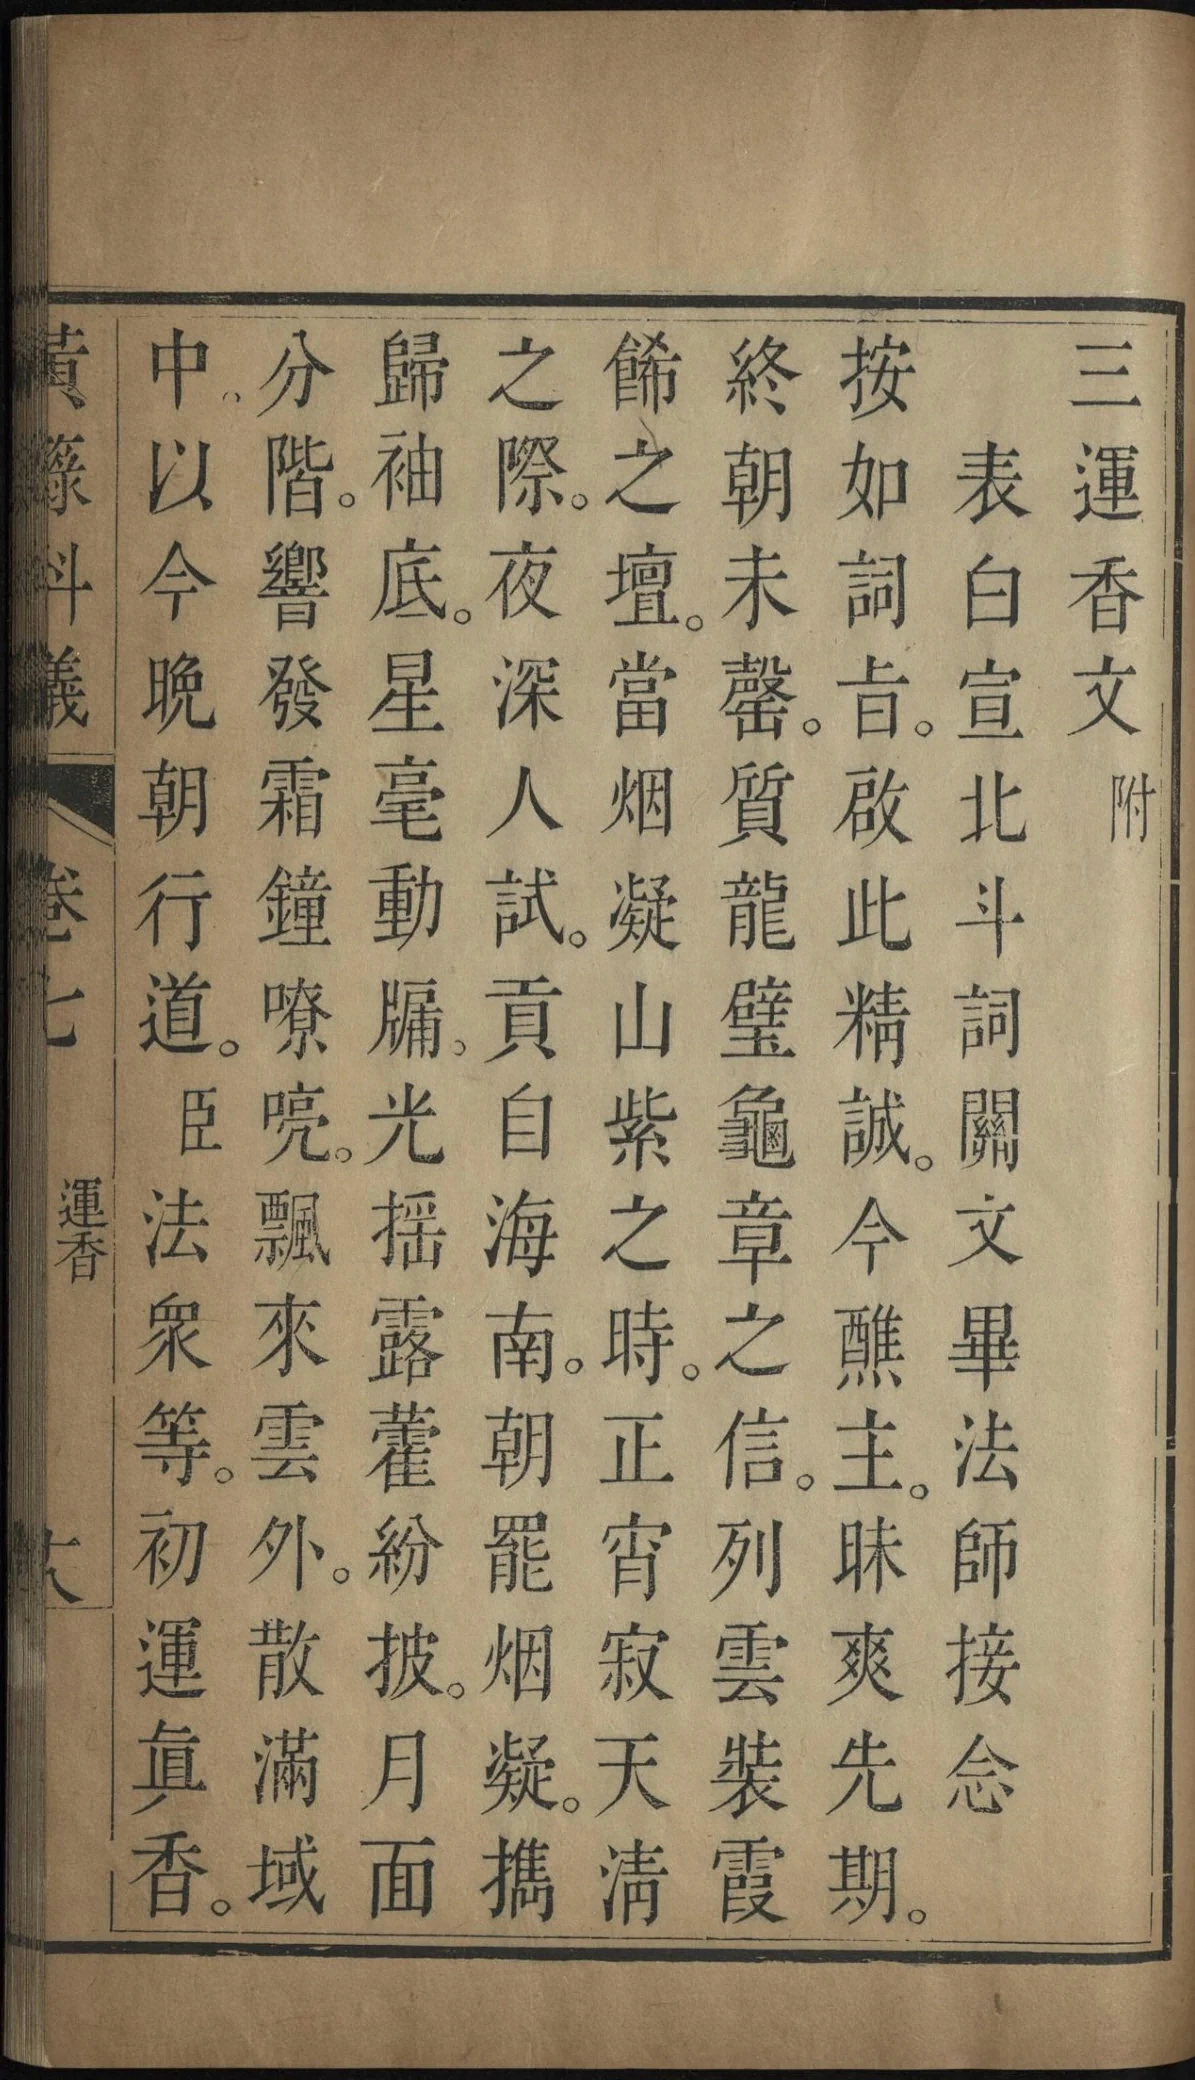 三運香文附
表白宣北斗詞關文畢法師接念
按如詞㫖。啟此精誠。今醮主。昧爽先期。
終朝未罄。質龍璧龜章之信。列雲裝霞
餙之壇。當烟凝山紫之時。正宵寂天清
之際。夜深人試。貢自海南。朝罷烟凝。攜
歸袖底。星毫動牖。光摇露藿紛披。月面
分階。響發霜鐘嘹喨。飄來雲外。散滿域
中。以今晚朝行道。臣法衆等。初運眞香。
黃籙科儀
卷七
運香